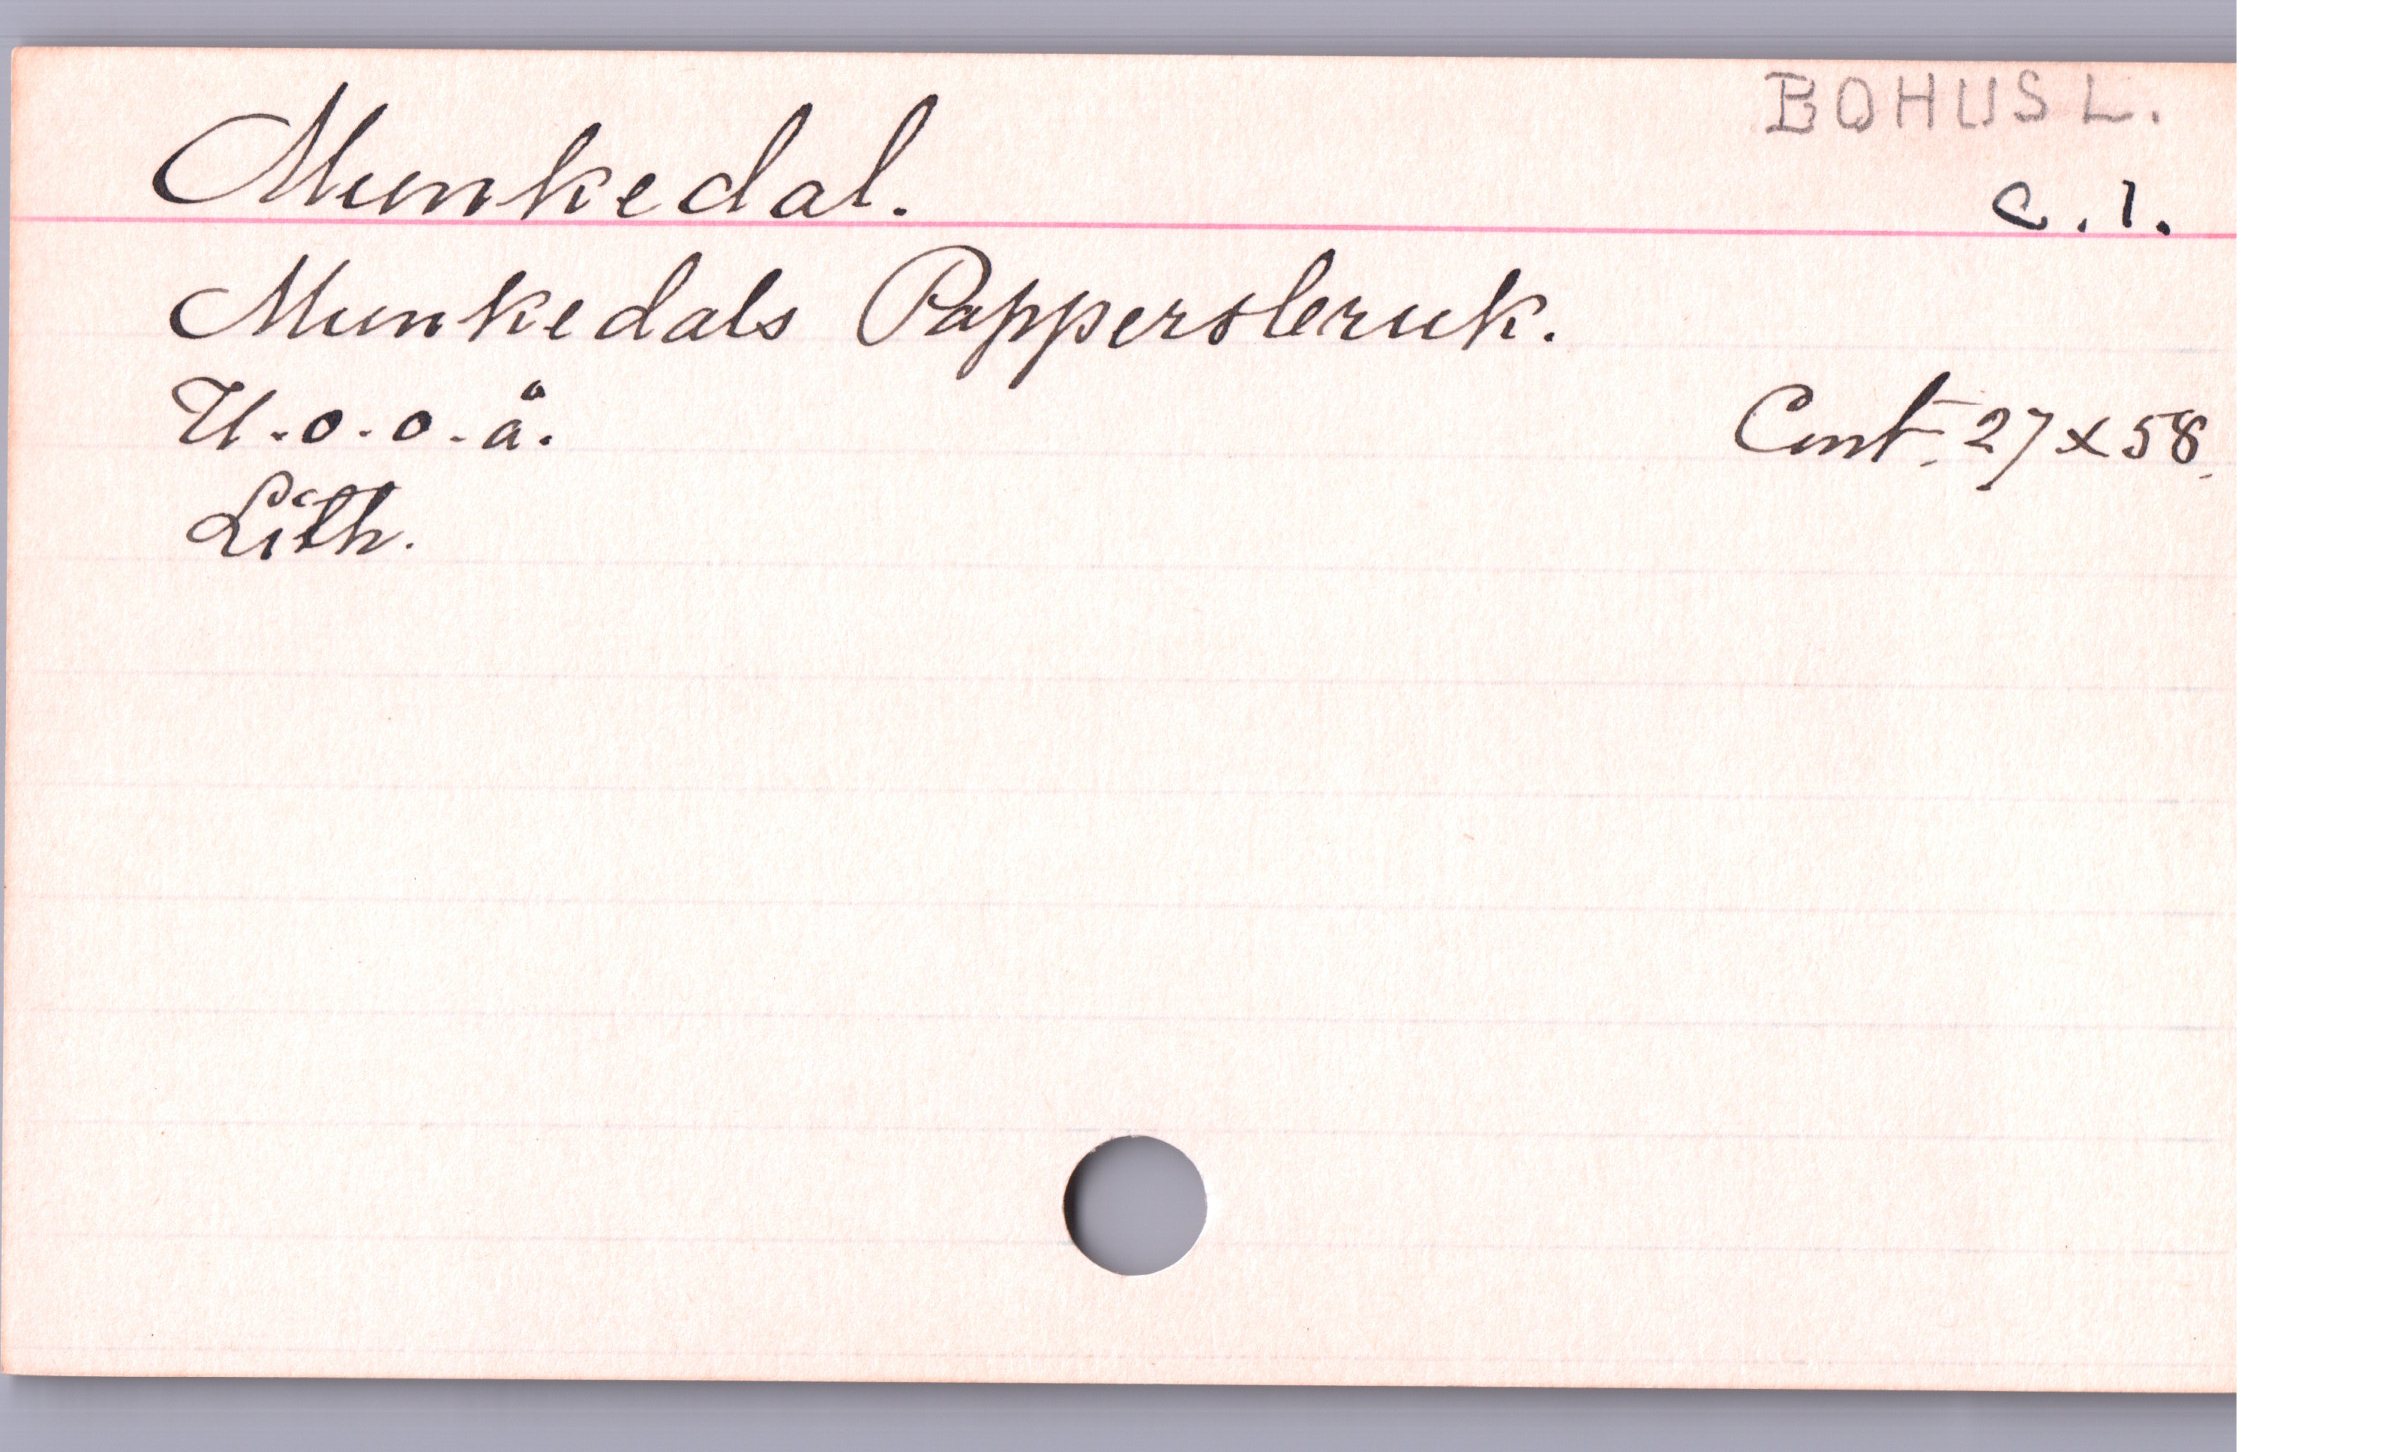 BOHUSL.
Munkedal.
c.1.
Munkedals Pappersbruk.
U.o.o.å.
Cmt. 27x58.
Lith.